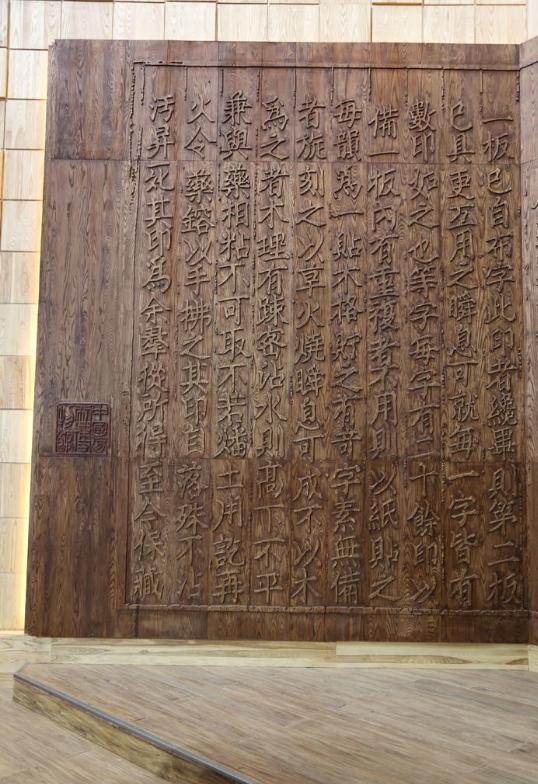 一板已自布字此印者纔畢則第二板
已具更互用之瞬息可就每一字皆有
數印如之也等字每字有二十餘印以
備一板內有重複者不用則以紙貼之
每韻為一貼木格貯之有奇字素無備
者旋刻之以草火燒瞬息可成不以木
為之者木理有疎密沾水則髙下不平
兼與藥相粘不可取不若燔土用訖再
火令藥鎔以手拂之其印自落殊不沾
汚昇死其印為余羣從所得至今保藏